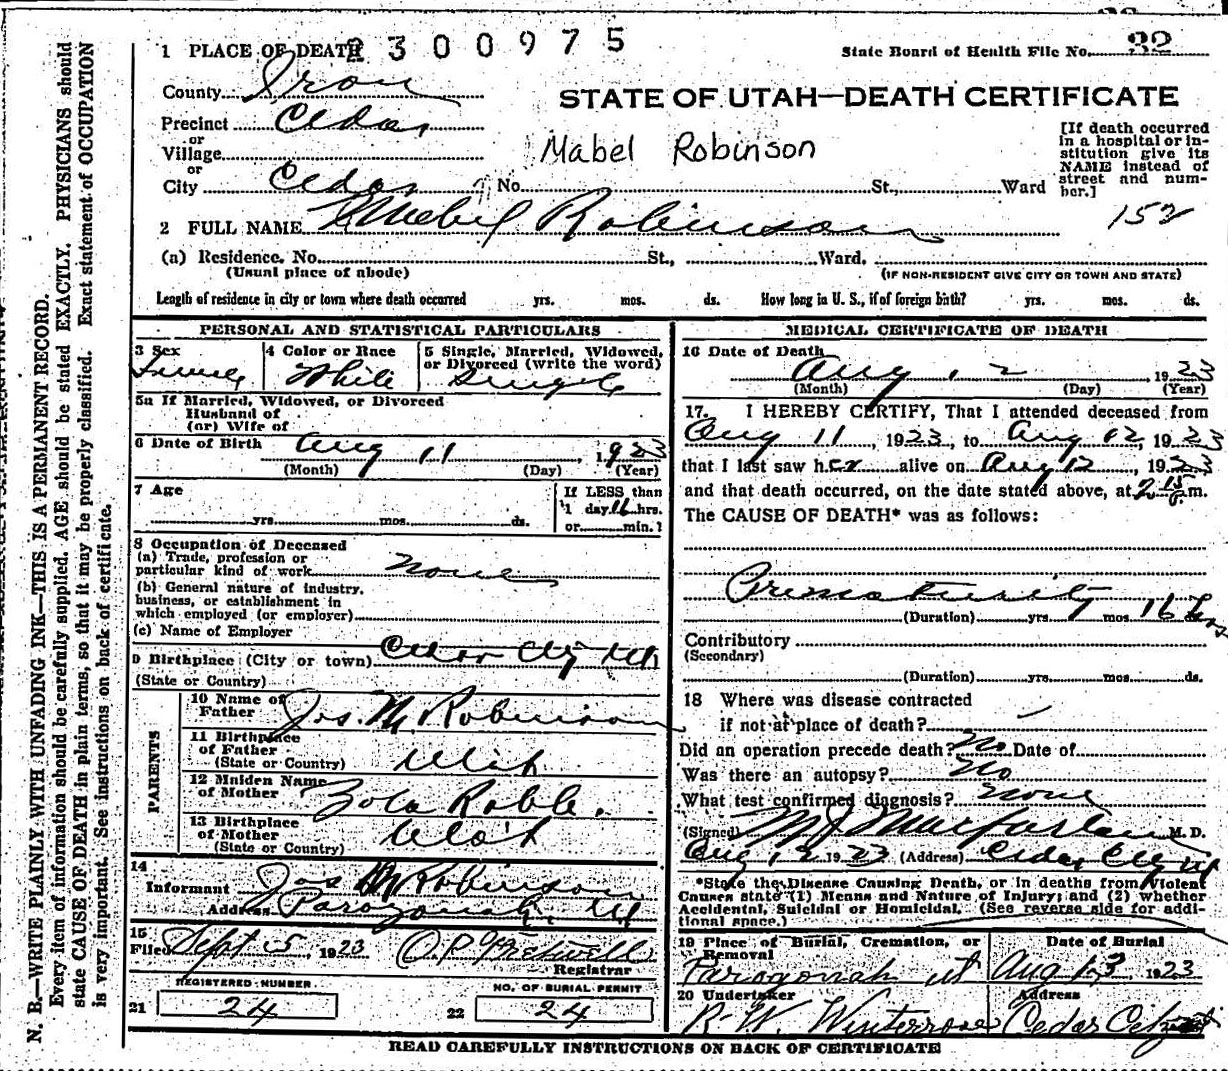 1 PLACE OF DEATH 2300975
State Board of Health File No. 32
County Iron
STATE OF UTAH—DEATH CERTIFICATE
Precinct Cedar
or
Village
Mabel Robinson
[If death occurred in a hospital or in-
stitution give its
NAME instead of
street and num-
ber.]
or
City Cedar No. St., Ward
152
2 FULL NAME Mabel Robinson
(a) Residence. No. St., Ward.
(Usual place of abode) (IF NON-RESIDENT GIVE CITY OR TOWN AND STATE)
Length of residence in city or town where death occurred yrs. mos. ds. How long in U. S., if of foreign birth? yrs. mos. ds.
PERSONAL AND STATISTICAL PARTICULARS
3 Sex
Female
4 Color or Race
White
5 Single, Married, Widowed,
or Divorced (write the word)
Single
5a If Married, Widowed, or Divorced
Husband of
(or) Wife of
6 Date of Birth Aug 11, 1923
(Month) (Day) (Year)
7 Age
yrs. mos. ds.
If LESS than
1 day 16 hrs.
or min.?
8 Occupation of Deceased
(a) Trade, profession or
particular kind of work None
(b) General nature of industry,
business, or establishment in
which employed (or employer)
(c) Name of Employer
9 Birthplace (City or town) Cedar City Ut
(State or Country)
PARENTS
10 Name of
Father Jos. M. Robinson
11 Birthplace
of Father Utah
(State or Country)
12 Maiden Name
of Mother Zola
13 Birthplace
of Mother Utah
(State or Country)
14
Informant Jos M Robinson
Address Paragonah, Ut
15
Filed Sept 5, 1923
Registrar
REGISTERED NUMBER
21 24
NO. OF BURIAL PERMIT
22 24
MEDICAL CERTIFICATE OF DEATH
16 Date of Death
Aug 12 1923
(Month) (Day) (Year)
17. I HEREBY CERTIFY, That I attended deceased from
Aug 11, 1923, to Aug 12, 1923
that I last saw her alive on Aug 12, 1923
and that death occurred, on the date stated above, at 2 15 m.
The CAUSE OF DEATH* was as follows:
Prematurity
(Duration) yrs. mos. 16 hrs
Contributory
(Secondary)
(Duration) yrs. mos. ds.
18 Where was disease contracted
if not at place of death?
Did an operation precede death? No Date of
Was there an autopsy? No
What test confirmed diagnosis? none
(Signed) M J Macfarlane M. D.
Aug 12 1923 (Address) Cedar City Ut
*State the Disease Causing Death, or in deaths from Violent
Causes state (1) Means and Nature of Injury; and (2) whether
Accidental, Suicidal or Homicidal. (See reverse side for addi-
tional space.)
19 Place of Burial, Cremation, or
Removal
Paragonah Ut
Date of Burial
Aug 13 1923
20 Undertaker
R. W. Winterrose
Address
Cedar City
READ CAREFULLY INSTRUCTIONS ON BACK OF CERTIFICATE
N. B.—WRITE PLAINLY WITH UNFADING INK—THIS IS A PERMANENT RECORD.
Every item of information should be carefully supplied. AGE should be stated EXACTLY. PHYSICIANS should
state CAUSE OF DEATH in plain terms, so that it may be properly classified. Exact statement of OCCUPATION
is very important. See instructions on back of certificate.